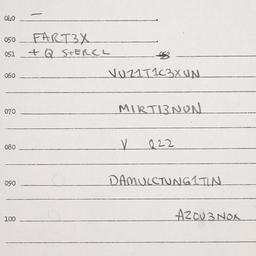 040 —
050 FART3X
051 + Q STERCL
060 VUZ1T1C3XUN
070 MIRTI3NUN
080 V Q22
090 DAMULCTUNG1TIN
100 AZOU3NOX